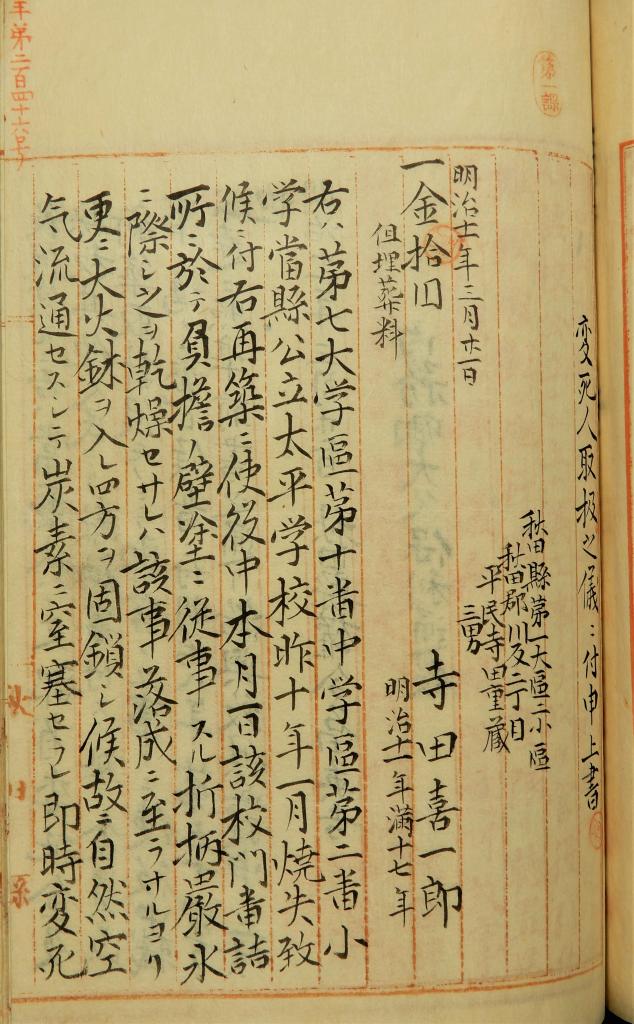 変死人取扱之儀ニ付申上書
秋田縣第一大區二小區
秋田郡川反二丁目
平民寺田重蔵
三男
寺田喜一郎
明治十一年満十七年
明治十一年三月廿一日
一金拾円
但埋葬料
右ハ第七大学區第十番中学區第二番小
学當縣公立太平学校昨十年一月焼失致
候ニ付右再築ニ使役中本月一日該校門番詰
所ニ於テ負擔ノ壁塗ニ従事スル折柄厳氷
ニ際シ之ヲ乾燥セサレハ該事落成ニ至ラサルヨリ
更ニ大火鉢ヲ入レ四方ヲ固鎖シ候故ニ自然空
気流通セスシテ炭素ニ窒塞セラレ即時変死
年第二百四十六号
第一課
秋田縣